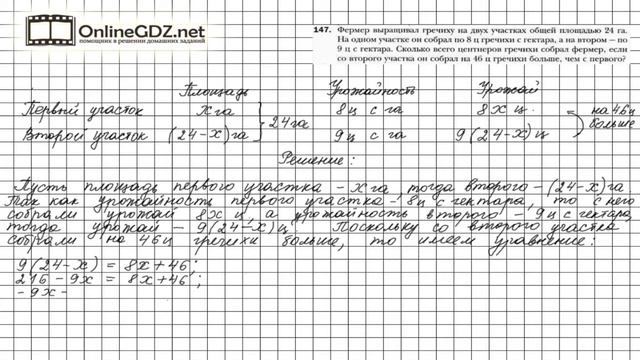 OnlineGDZ.net
помощник в решении домашних заданий
147. Фермер выращивал гречиху на двух участках общей площадью 24 га.
На одном участке он собрал по 8 ц гречихи с гектара, а на втором – по
9 ц с гектара. Сколько всего центнеров гречихи собрал фермер, если
со второго участка он собрал на 46 ц гречихи больше, чем с первого?
Площадь Урожайность Урожай
Первый участок x га 8ц с га 8x ц. на 46ц
24га больше
Второй участок (24-x)га 9ц с га 9(24-x)ц
Решение:
Пусть площадь первого участка - x га, тогда второго - (24-x)га
Так как урожайность первого участка - 8ц с гектара, то с него
собрали урожай 8x ц, а урожайность второго - 9ц с гектара,
тогда урожай - 9(24-x)ц. Поскольку со второго участка
собрали на 46ц гречихи больше, то имеем уравнение:
9(24-x) = 8x+46;
216 - 9x = 8x+46;
- 9x -